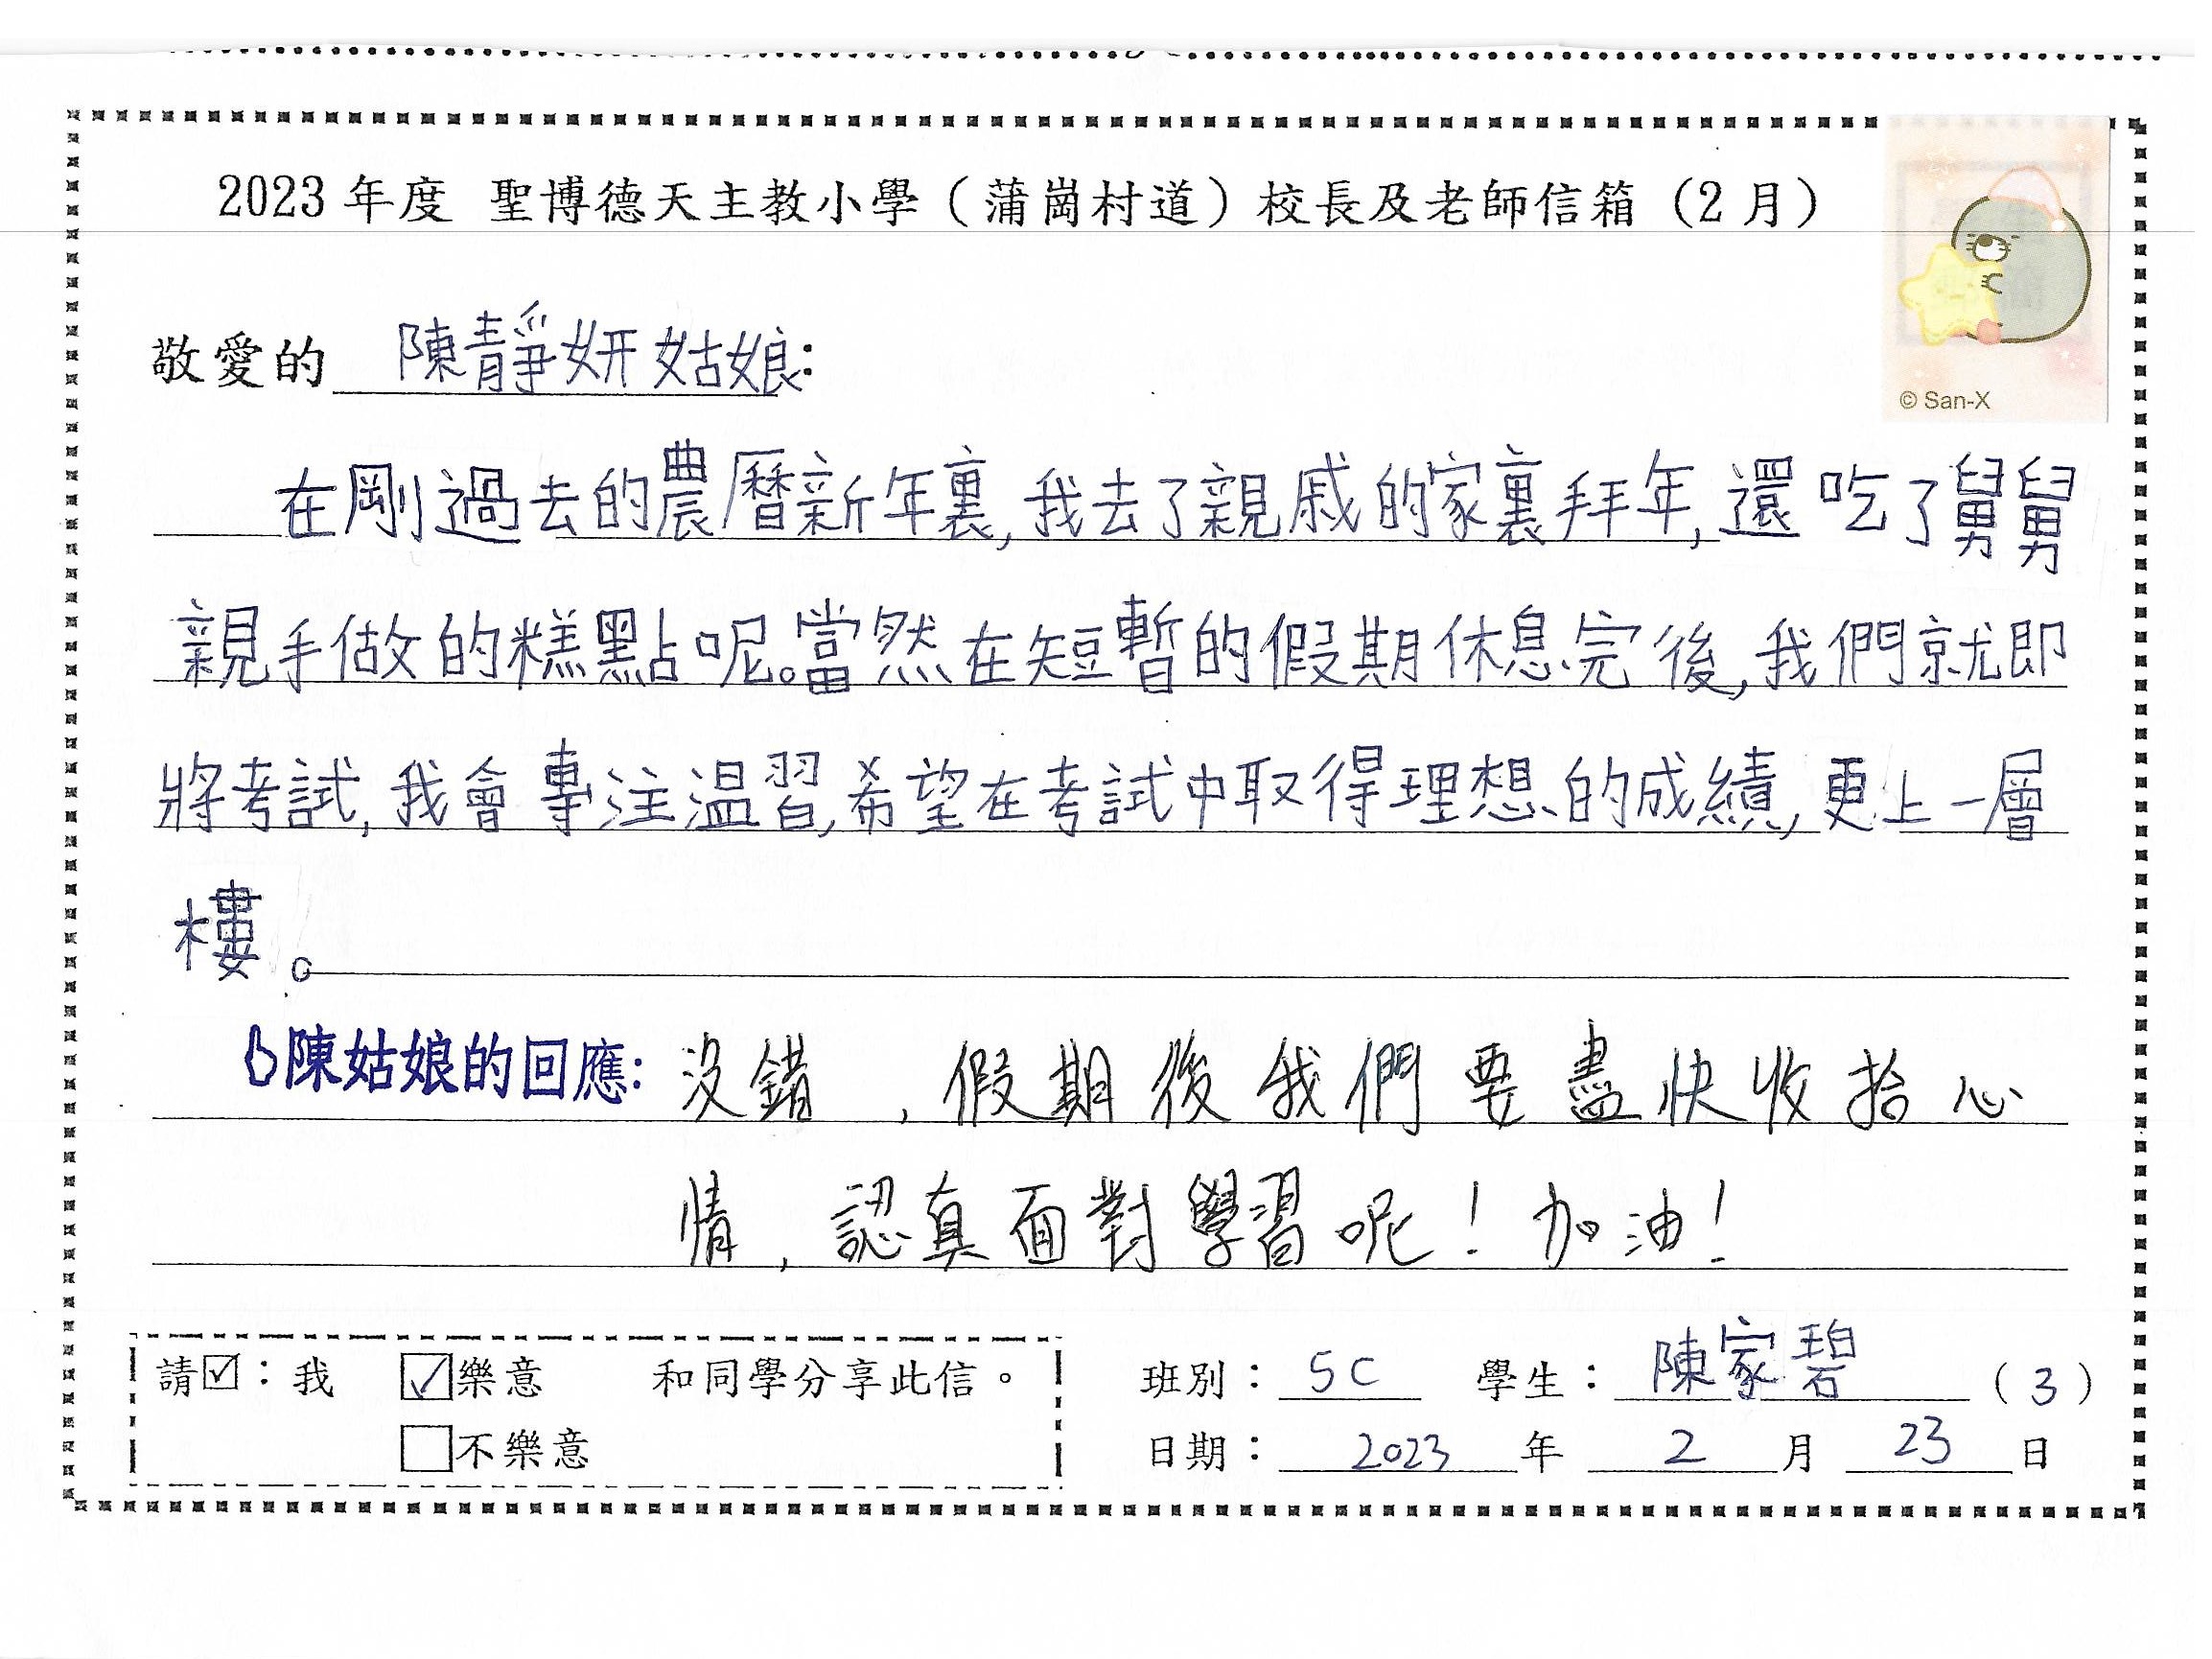 2023 年度 聖博德天主教小學（蒲崗村道）校長及老師信箱（2 月）
© San-X
敬愛的 陳靜妍姑娘：
在剛過去的農曆新年裏，我去了親戚的家裏拜年，還吃了舅舅
親手做的糕點呢。當然在短暫的假期休息完後，我們就即
將考試，我會專注溫習，希望在考試中取得理想的成績，更上一層
樓。
陳姑娘的回應：沒錯，假期後我們要盡快收拾心
情，認真面對學習呢！加油！
請☑：我 ☑樂意 和同學分享此信。
☐不樂意
班別：5C 學生：陳家碧（3）
日期：2023 年 2 月 23 日